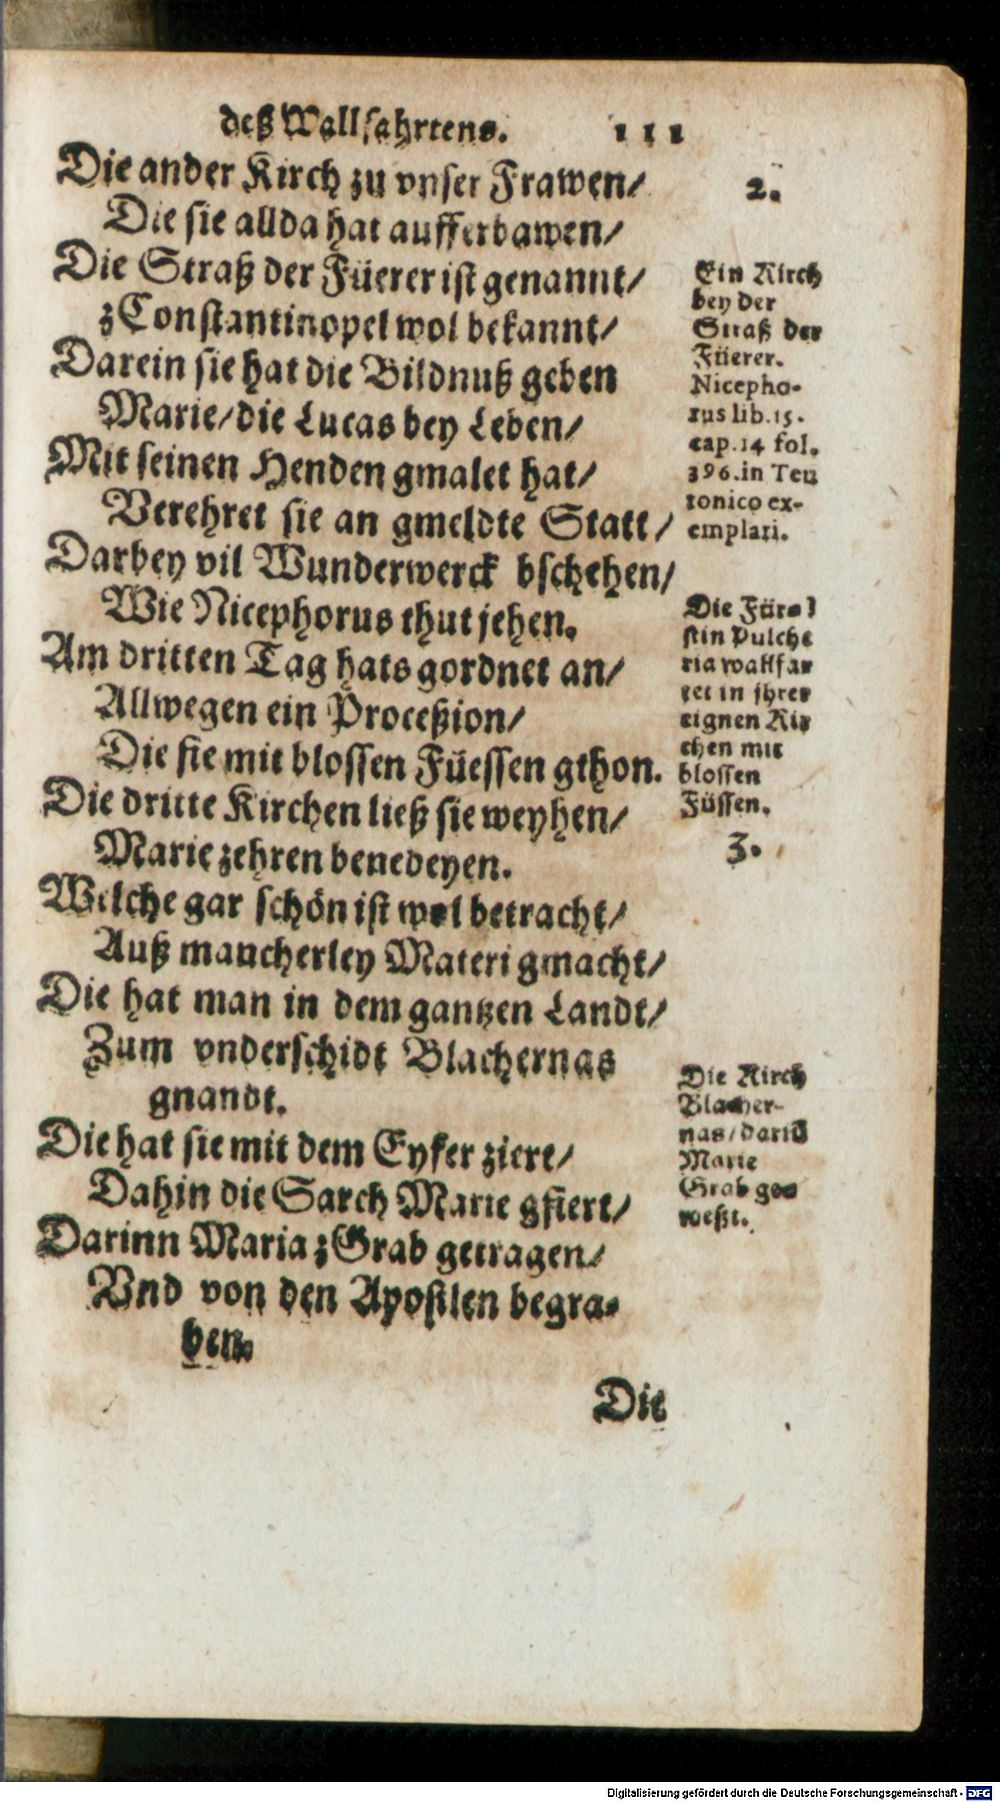 deß Wallfahrtens. 111
Die ander Kirch zu vnser Frawen/
Die sie allda hat aufferbawen/
Die Straß der Füerer ist genannt/
zConstantinopel wol bekannt/
Darein sie hat die Bildnuß geben
Marie/die Lucas bey Leben/
Mit seinen Henden gmalet hat/
Verehret sie an gmeldte Statt/
Darbey vil Wunderwerck bschehen/
Wie Nicephorus thut jehen.
Am dritten Tag hats gordnet an/
Allwegen ein Proceßion/
Die sie mit blossen Füessen gthon.
Die dritte Kirchen ließ sie weyhen/
Marie zehren benedeyen.
Welche gar schön ist wol betracht/
Auß mancherley Materi gmacht/
Die hat man in dem gantzen Landt/
Zum vnderschidt Blachernas
gnandt.
Die hat sie mit dem Eyfer ziert/
Dahin die Sarch Marie gfiert/
Darinn Maria zGrab getragen/
Vnd von den Apostlen begra-
ben.
Die
2.
Ein Kirch
bey der
Straß der
Füerer.
Nicepho-
rus lib.15.
cap.14 fol.
396.in Teu
tonico ex-
emplari.
Die Für-
stin Pulche
ria wallfar
tet in jhrer
eignen Kir
chen mit
blossen
Füssen.
3.
Die Kirch
Blacher-
nas/darin
Marie
Grab ge-
weßt.
Digitalisierung gefördert durch die Deutsche Forschungsgemeinschaft - DFG